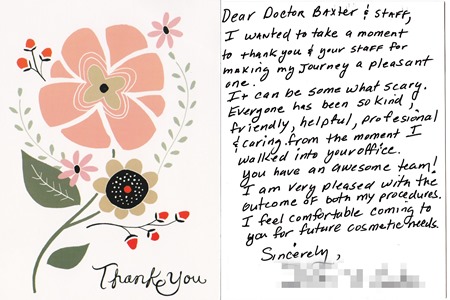 Thank You
Dear Doctor Baxter & Staff,
I wanted to take a moment
to thank you & your staff for
making my journey a pleasant
one.
It can be some what scary.
Everyone has been so kind,
friendly, helpful, profesional
& caring from the moment I
walked into your office.
You have an awesome team!
I am very pleased with the
outcome of both my procedures.
I feel comfortable coming to
you for future cosmetic needs.
Sincerely,